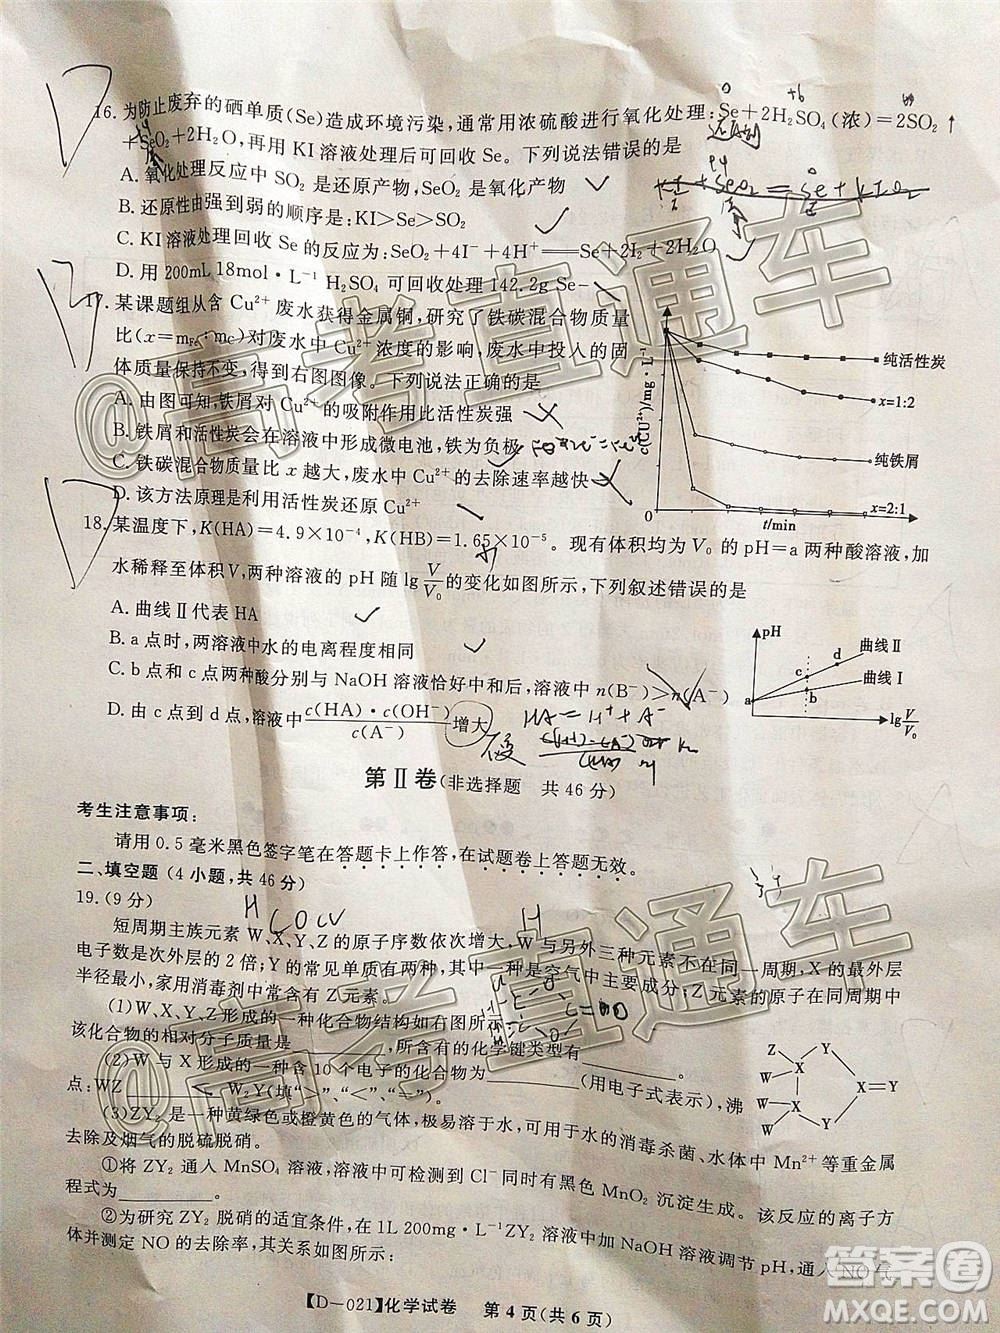 16. 为防止废弃的硒单质(Se)造成环境污染,通常用浓硫酸进行氧化处理:Se+2H₂SO₄(浓)=2SO₂↑
+SeO₂+2H₂O,再用 KI 溶液处理后可回收 Se。下列说法错误的是
A. 氧化处理反应中 SO₂ 是还原产物,SeO₂ 是氧化产物
B. 还原性由强到弱的顺序是:KI>Se>SO₂
C. KI 溶液处理回收 Se 的反应为:SeO₂+4I⁻+4H⁺=Se+2I₂+2H₂O
D. 用 200mL 18mol·L⁻¹ H₂SO₄ 可处理回收 142.2g Se
17. 某课题组从含 Cu²⁺ 废水获得金属铜,研究了铁碳混合物质量
比(x=m_Fe:m_C)对废水中 Cu²⁺ 浓度的影响,废水中投入的固
体质量保持不变,得到右图图像。下列说法正确的是
A. 由图可知,铁屑对 Cu²⁺ 的吸附作用比活性炭强
B. 铁屑和活性炭会在溶液中形成微电池,铁为负极
C. 铁碳混合物质量比 x 越大,废水中 Cu²⁺ 的去除速率越快
D. 该方法原理是利用活性炭还原 Cu²⁺
c(CU²⁺)/mg·L⁻¹
纯活性炭
x=1:2
纯铁屑
x=2:1
0
t/min
18. 某温度下,K(HA)=4.9×10⁻⁴,K(HB)=1.65×10⁻⁵。现有体积均为 V₀ 的 pH=a 两种酸溶液,加
水稀释至体积 V,两种溶液的 pH 随 lg V/V₀ 的变化如图所示,下列叙述错误的是
A. 曲线Ⅱ代表 HA
B. a 点时,两溶液中水的电离程度相同
C. b 点和 c 点两种酸分别与 NaOH 溶液恰好中和后,溶液中 n(B⁻)>n(A⁻)
D. 由 c 点到 d 点,溶液中 c(HA)·c(OH⁻)/c(A⁻) 增大
pH
曲线Ⅱ
曲线Ⅰ
a
b
c
d
lg V/V₀
HA=H⁺+A⁻
第Ⅱ卷(非选择题 共 46 分)
考生注意事项:
请用 0.5 毫米黑色签字笔在答题卡上作答,在试题卷上答题无效。
二、填空题(4 小题,共 46 分)
19. (9 分)
短周期主族元素 W、X、Y、Z 的原子序数依次增大, W 与另外三种元素不在同一周期, X 的最外层
电子数是次外层的 2 倍; Y 的常见单质有两种,其中一种是空气中主要成分; Z 元素的原子在同周期中
半径最小,家用消毒剂中常含有 Z 元素。
(1)W、X、Y、Z 形成的一种化合物结构如右图所示
该化合物的相对分子质量是________,所含有的化学键类型有________
(2)W 与 X 形成的一种含 10 个电子的化合物为________(用电子式表示),沸
点: WZ ________ W₂Y(填“>”、“<”、“=”)
(3)ZY₂ 是一种黄绿色或橙黄色的气体,极易溶于水,可用于水的消毒杀菌、水体中 Mn²⁺等重金属
去除及烟气的脱硫脱硝。
①将 ZY₂ 通入 MnSO₄ 溶液,溶液中可检测到 Cl⁻ 同时有黑色 MnO₂ 沉淀生成。该反应的离子方
程式为________。
②为研究 ZY₂ 脱硝的适宜条件,在 1L 200mg·L⁻¹ZY₂ 溶液中加 NaOH 溶液调节 pH,通入 NO 气
体并测定 NO 的去除率,其关系如图所示:
【D—021】化学试卷 第 4 页(共 6 页)
@高考直通车
@高考直通车
答案圈
MXQE.COM